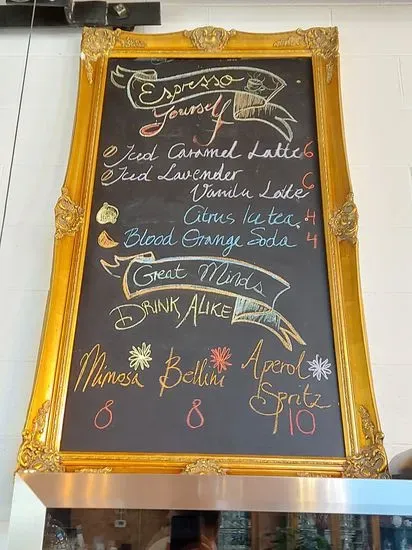 Espresso
Yourself
Iced Caramel Latte 6
Iced Lavender
Vanilla Latte 6
Citrus Ice tea 4
Blood Orange Soda 4
Great Minds
DRINK ALIKE
Mimosa Bellini Aperol
Spritz
8 8 10